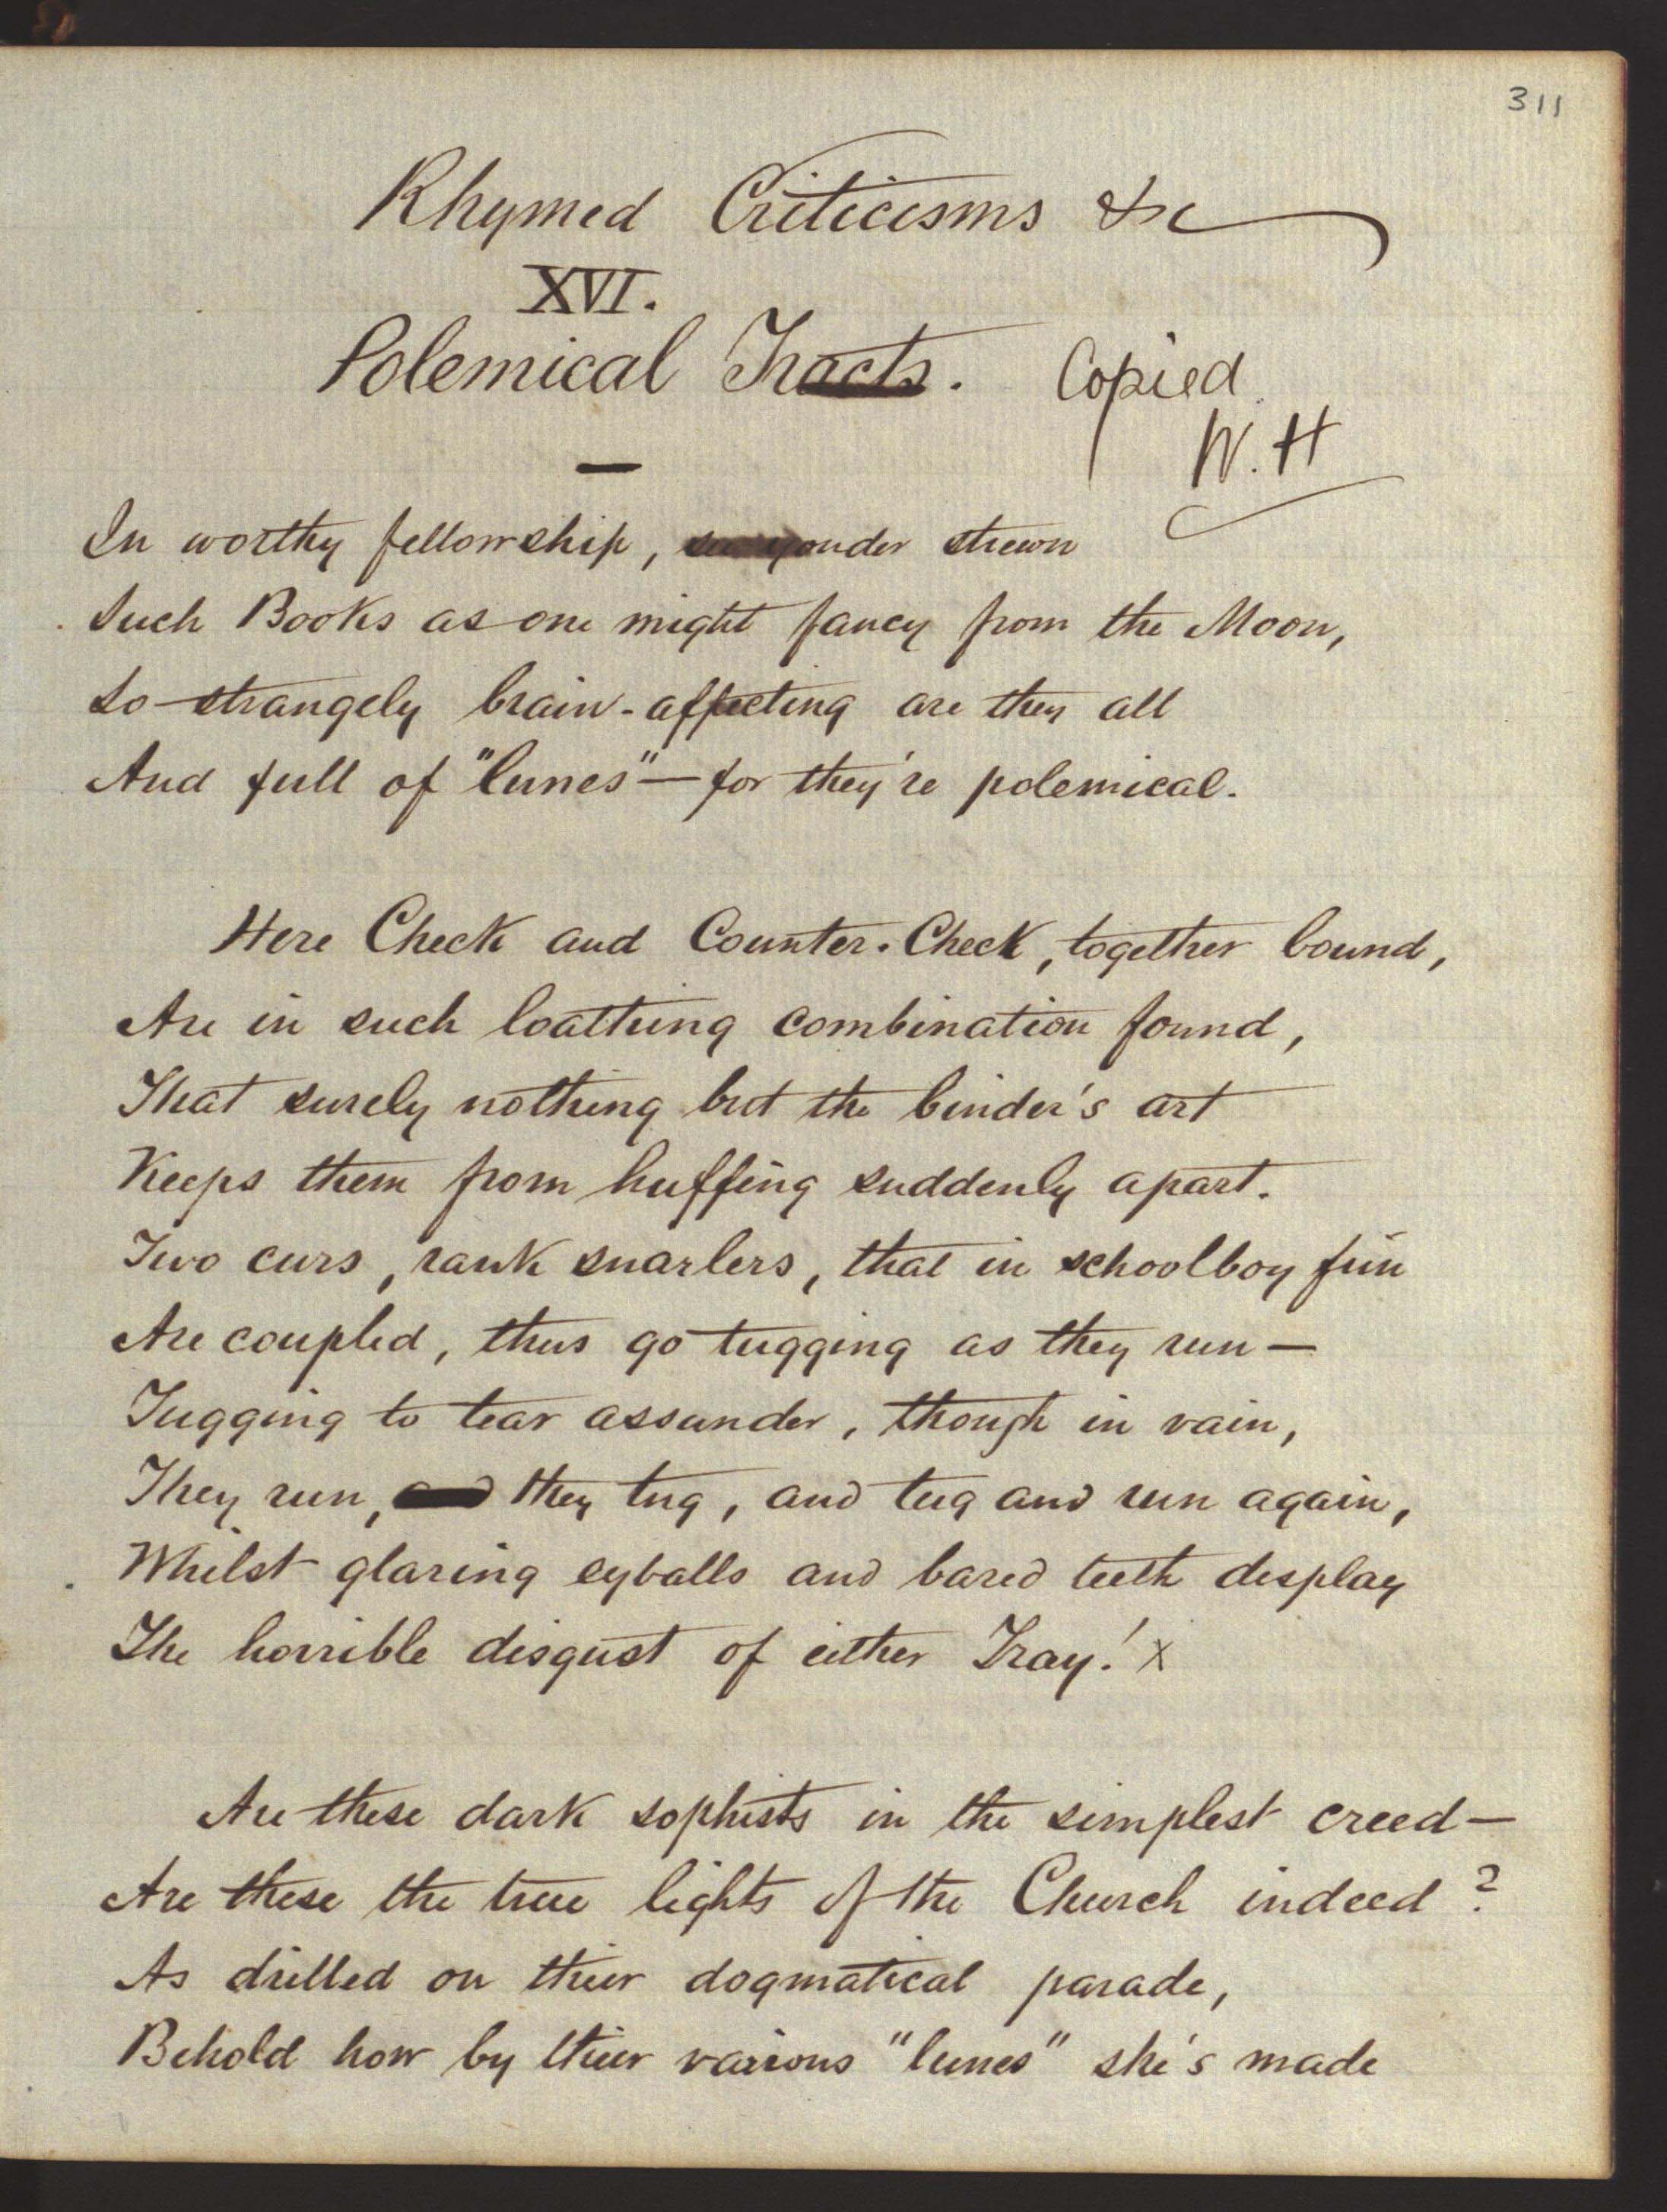 311
Rhymed Criticisms &c
XVI.
Polemical Tracts. Copied
W. H
In worthy fellowship, see yonder strewn
Such Books as one might fancy from the Moon,
So strangely brain-affecting are they all
And full of "lunes" — for they're polemical.
Here Check and Counter-Check, together bound,
Are in such loathing combination found,
That surely nothing but the binder's art
Keeps them from huffing suddenly apart.
Two curs, rank snarlers, that in schoolboy fun
Are coupled, thus go tugging as they run —
Tugging to tear assunder, though in vain,
They run, and they tug, and tug and run again,
Whilst glaring eyballs and bared teeth display
The horrible disgust of either Tray! x
Are these dark sophists in the simplest creed —
Are these the true lights of the Church indeed?
As drilled on their dogmatical parade,
Behold how by their various "lunes" she's made